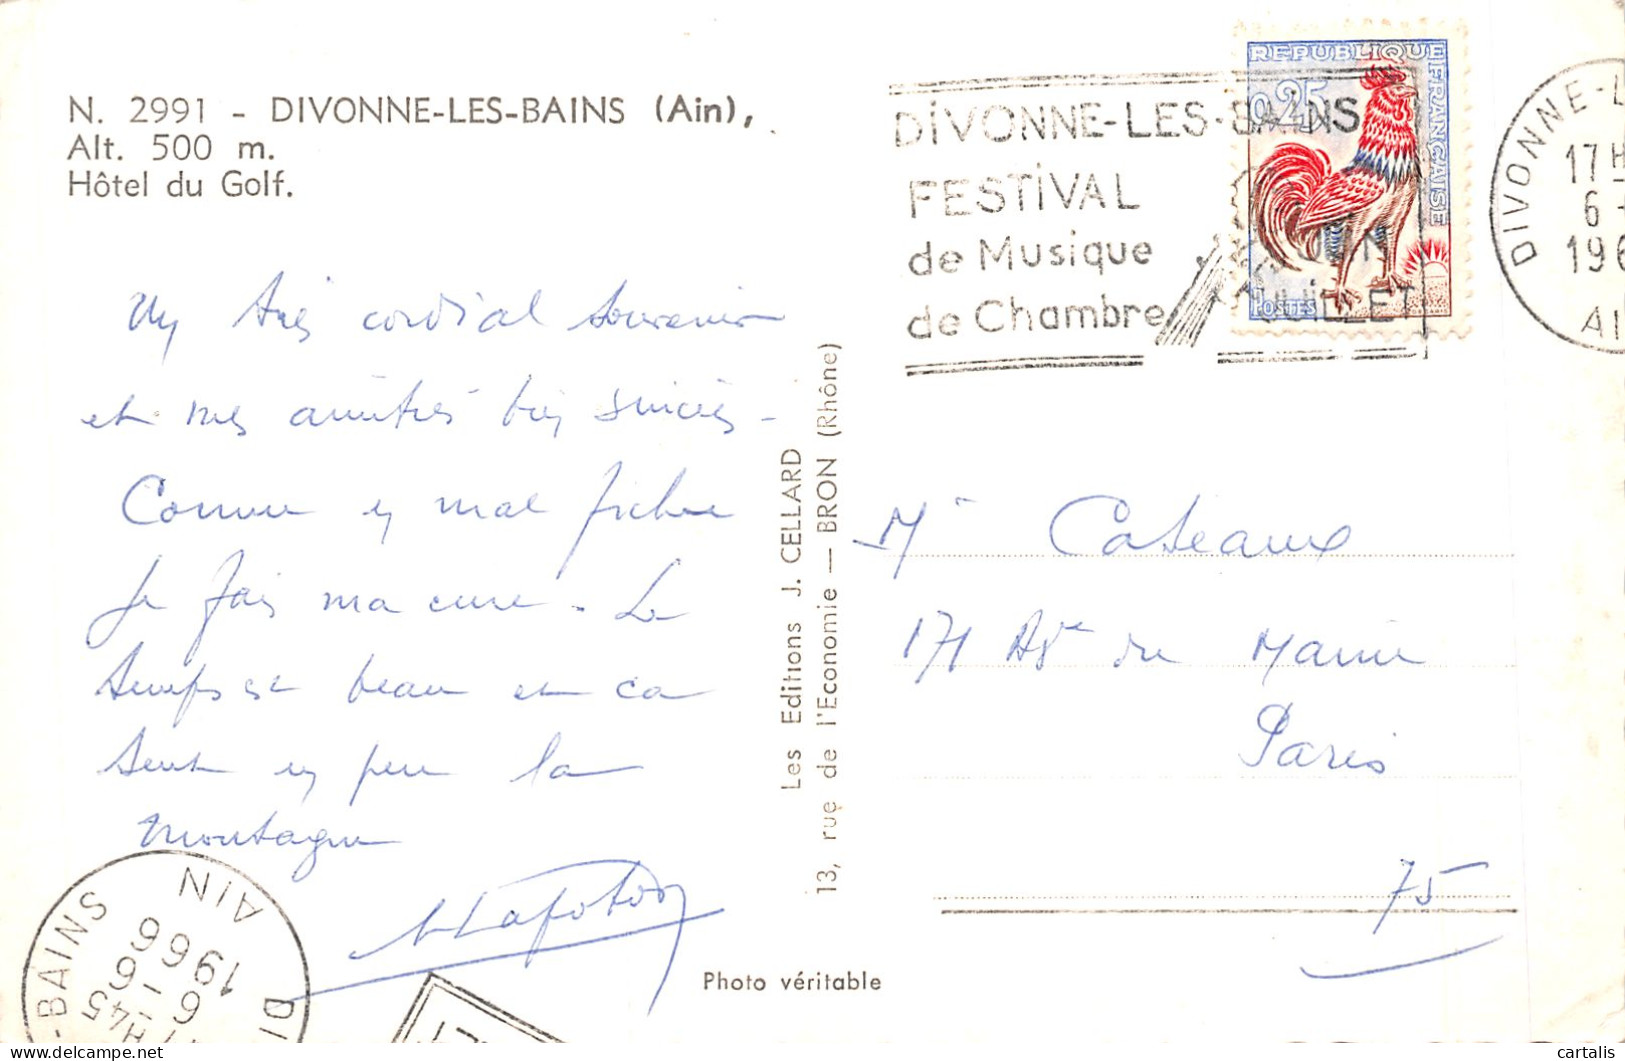 N. 2991 - DIVONNE-LES-BAINS (Ain),
Alt. 500 m.
Hôtel du Golf.
Un très cordial souvenir
et mes amitiés très sincères -
Comme
mal fichue
Je fais ma cure. Le
temps est beau et ça
sent un peu la
montagne
Les Editions J. CELLARD
13, rue de l'Economie — BRON (Rhône)
Photo véritable
DIVONNE-LES-BAINS
FESTIVAL
de Musique
de Chambre
JUIN
JUILLET
REPUBLIQUE FRANÇAISE
0,25
POSTES
DIVONNE-L
17H
6 -
196
AI
Mr Cateaux
171 Ave du Maine
Paris
75
-BAINS
DI
AIN
17H45
6 - 6
1966
cartalis